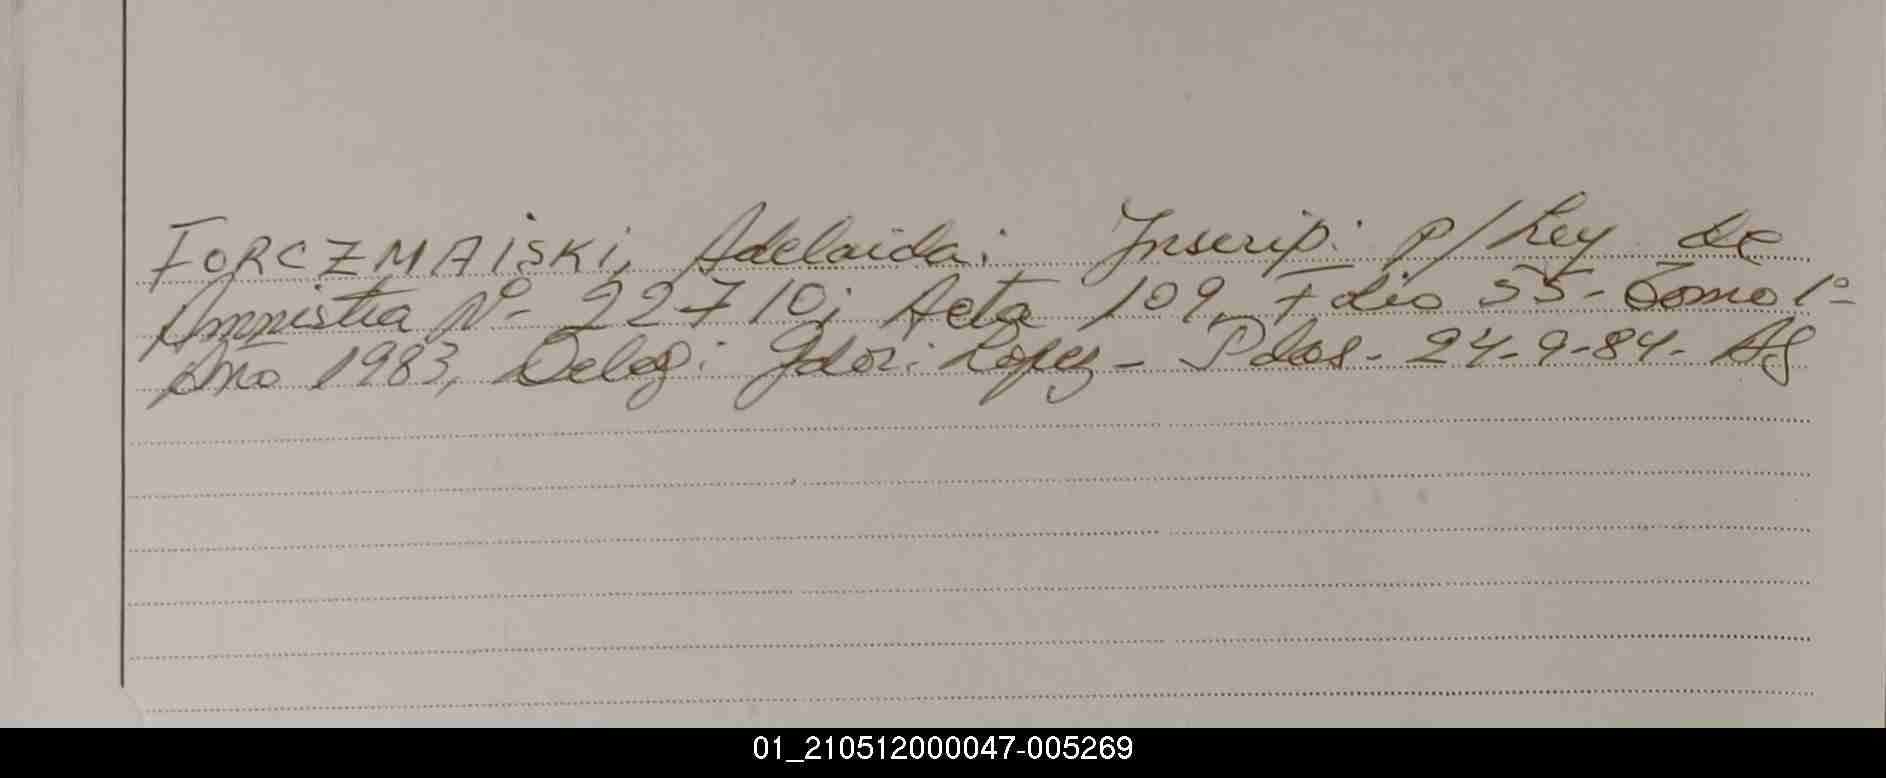 FORCZMAISKI, Adelaida: Inscrip: p/Ley de
Amnistia Nº 22710; Acta 109, Folio 55- Tomo 1º-
Año 1983, Deleg: Gdor: Lopez- Pdas- 24-9-84-
01_210512000047-005269